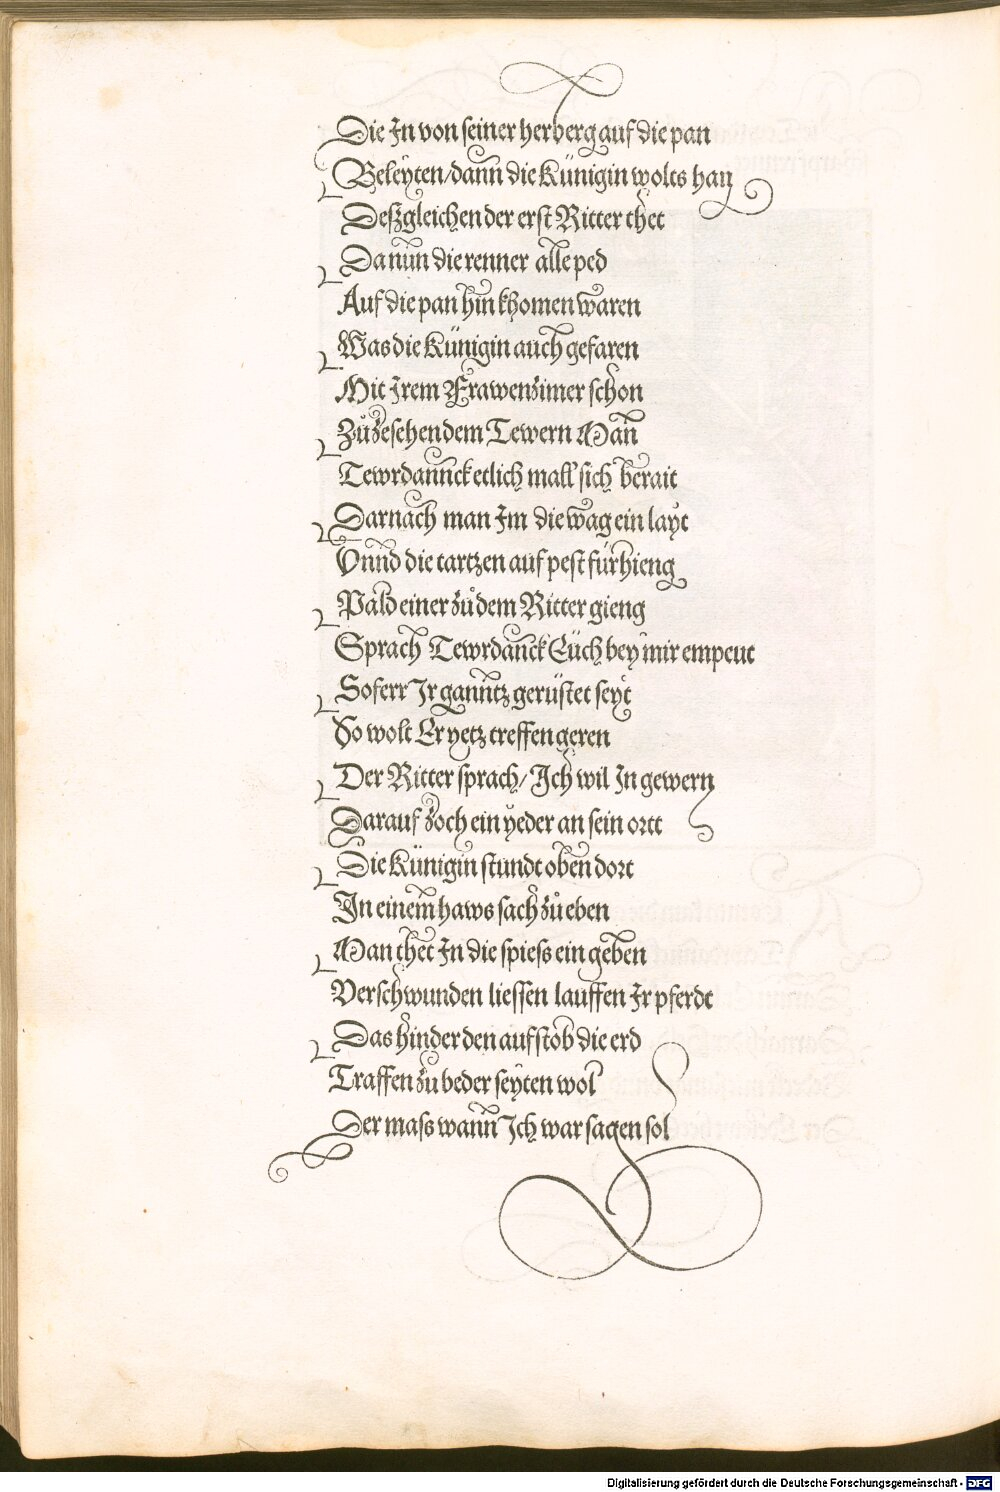 Die In von seiner herberg auf die pan
Beleyten/dann die Künigin wolts han
Deszgleichen der erst Ritter thet
Da nun die renner alle ped
Auf die pan hin khomen waren
Was die Künigin auch gefaren
Mit Irem Frawenzimer schon
Zůzesehen dem Tewern Man
Tewrdannck etlich mall sich berait
Darnach man Im die wag ein layt
Vnnd die tartzen auf pest fürhieng
Pald einer zů dem Ritter gieng
Sprach Tewrdanck Eüch bey mir empeut
Soferr Ir ganntz gerüstet seyt
So wolt Er yetz treffen geren
Der Ritter sprach/ Ich wil In gewern
Darauf zoch ein yeder an sein ortt
Die Künigin stundt oben dort
In einem haws sach zů eben
Man thet In die spiess ein geben
Verschwunden liessen lauffen Ir pferdt
Das hinder den aufstob die erd
Traffen zu beder seyten wol
Der mass wann Ich war sagen sol
Digitalisierung gefördert durch die Deutsche Forschungsgemeinschaft - DFG